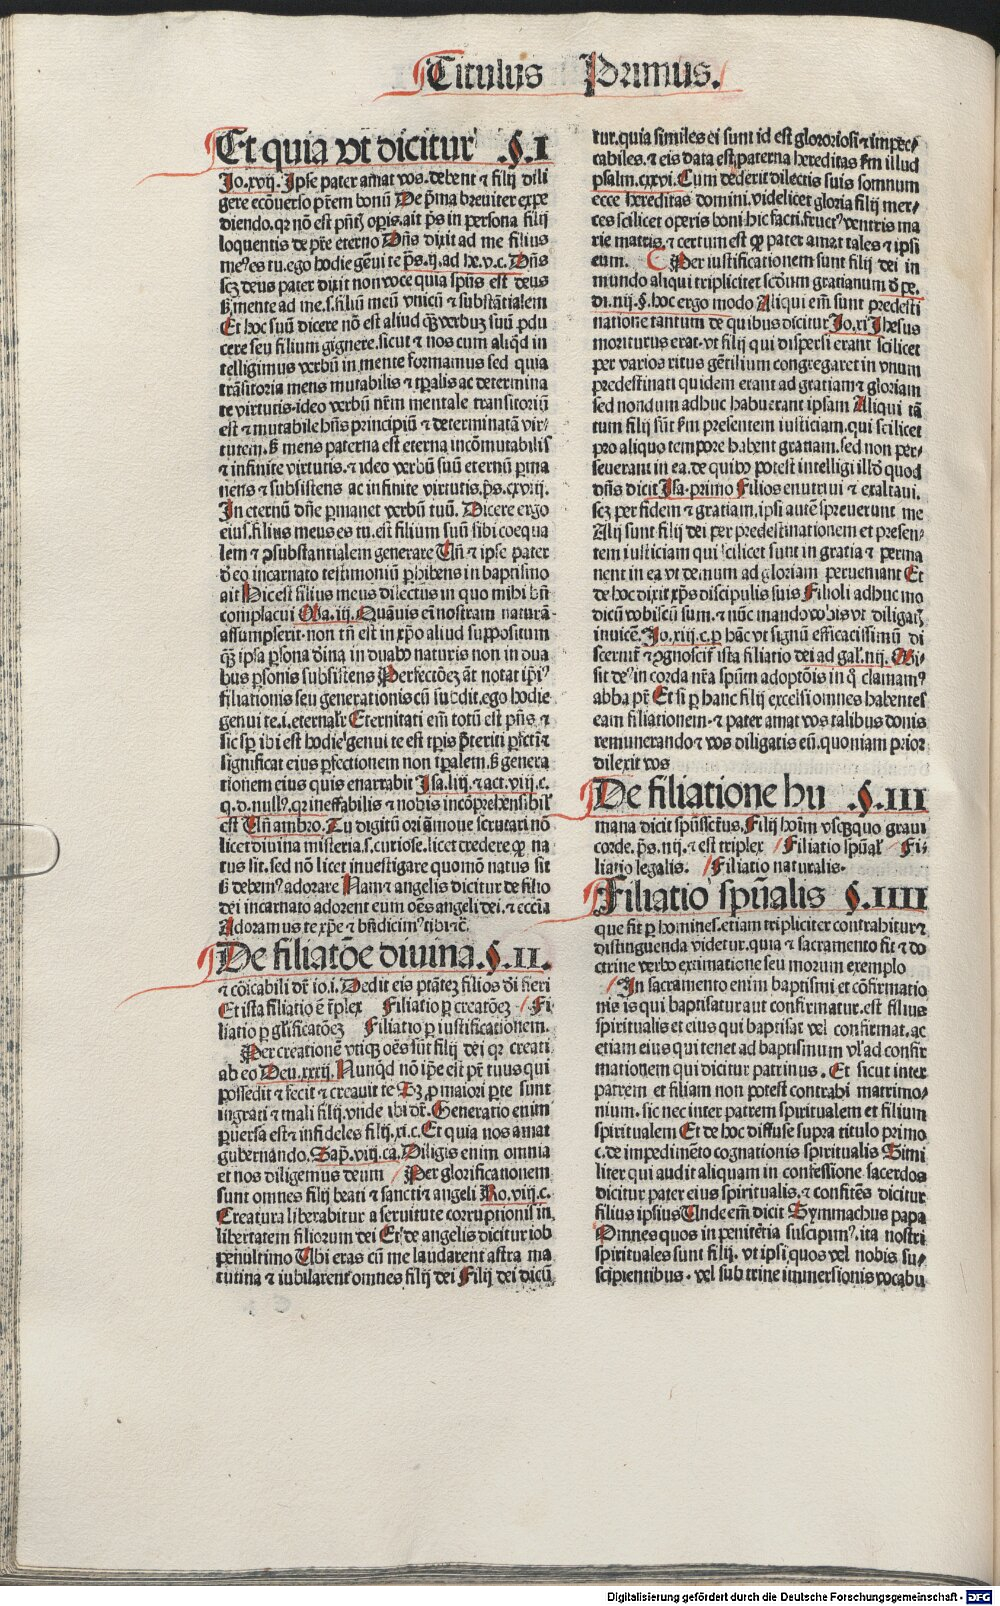 Titulus Primus.
Et quia vt dicitur .§.I
Jo.xvij. Ipse pater amat vos. debent ⁊ filij dili
gere ecōuerso pr̄em bonū De p̄ma breuiter expe
diendo. qr nō est p̄ntꝭ oꝑis. ait p̄s in persona filij
loquentis de pr̄e eterno Dn̄s dixit ad me filius
meꝰ es tu. ego hodie gēui te p̄s.ij. ad he.v.c. Dn̄s
scꝫ deus pater dixit non voce quia sp̄us est deus
ß mente ad me .s. filiū meū vnicū ⁊ substātialem
Et hoc suū dicere nō est aliud qͣꝫ verbuꝫ suū ꝓdu
cere seu filium gignere. sicut ⁊ nos cum aliqͥd in
telligimus verbū in mente formamus sed quia
trāsitoria mens mutabilis ⁊ tꝑalis ac determina
te virtutis. ideo verbū nr̄m mentale transitoriū
est ⁊ mutabile hn̄s principiū ⁊ determinatā vir/
tutem. ß mens paterna est eterna incōmutabilis
⁊ infinite virtutis. ⁊ ideo verbū suū eternū ꝑma
nens ⁊ subsistens ac infinite virtutis. p̄s.cxviij.
In eternū dn̄e ꝑmanet verbū tuū. Dicere ergo
eius. filius meus es tu. est filium suū sibi coequa
lem ⁊ ꝯsubstantialem generare Un̄ ⁊ ipse pater
d̄ eo incarnato testimoniū ꝑhibens in baptismo
ait Hic est filius meus dilectus in quo mihi bn̄
complacui Ma.iij. Quāuis em̄ nostram naturā
assumpserit. non tn̄ est in xp̄o aliud suppositum
qͣꝫ ipsa ꝑsona diuīa in duabꝰ naturis non in dua
bus ꝑsonis subsistens Perfectōeꝫ aūt notat ipīꝰ
filiationis seu generationis cū subdit. ego hodie
genui te .i. eternalr̄ Eternitati em̄ totū est p̄ns. ⁊
sic sꝑ ibi est hodie genui te est tꝑis p̄teriti ꝑfecti ⁊
significat eius ꝑfectionem non tꝑalem. ß genera
tionem eius quis enarrabit Isa.liij. ⁊ act.viij.c.
q.d. nullꝰ. qꝛ ineffabilis ⁊ nobis incōprehensibil̄
est Un̄ ambro. Tu digitū ori āmoue scrutari nō
licet diuina misteria .s. curiose. licet credere ꝙ na
tus sit. sed nō licet inuestigare quomō natus sit
ß debemꝰ adorare Nam ⁊ angelis dicitur de filio
dei incarnato adorent eum oēs angeli dei. ⁊ eccl̄ia
Adoramus te xp̄e ⁊ bn̄dicimꝰ tibi ⁊c̄.
De filiatōe diuina.§.II.
⁊ cōicabili dr̄ io.i. Dedit eis ptāteꝫ filios dī fieri
Et ista filiatio ē tr̄plex Filiatio ꝑ creatōeꝫ / Fi
liatio ꝑ gl̄ificatōeꝫ Filiatio ꝑ iustificationem.
Per creationē vtiqꝫ oēs sūt filij dei qꝛ creati
ab eo Deu.xxxij. Nunqͥd nō ip̄e est pr̄ tuus qui
possedit ⁊ fecit ⁊ creauit te Tꝫ ꝓ maiori ꝑte sunt
ingrati ⁊ mali filij. vnde ibi dr̄. Generatio enim
ꝑuersa est ⁊ infideles filij. xi.c. Et quia nos amat
gubernando. Sap̄.viij.ca. Diligis enim omnia
et nos diligemus deum / Per glorificationem
sunt omnes filij beati ⁊ sancti ⁊ angeli Ro.viij.c.
Creatura liberabitur a seruitute corruptionis in
libertatem filiorum dei Et de angelis dicitur iob
penultimo Ubi eras cū me laudarent astra ma
tutina ⁊ iubilarent omnes filij dei Filij dei dicū
tur. quia similes ei sunt id est gloriosi ⁊ impec/
cabiles. ⁊ eis data est paterna hereditas ẜm illud
psalm.cxxvi. Cum dederit dilectis suis somnum
ecce hereditas domini. videlicet gloria filij mer/
ces scilicet operis boni hic facti. fructꝰ ventris ma
rie matris. ⁊ certum est ꝙ pater amat tales ⁊ ipsi
eum. Per iustificationem sunt filij dei in
mundo aliqui tripliciter scd̄um gratianum d̄ pe.
di.iiij.§. hoc ergo modo Aliqui em̄ sunt predesti
natione tantum de quibus dicitur Jo.xi Ihesus
moriturus erat. vt filij qui dispersi erant scilicet
per varios ritus gētilium congregaret in vnum
predestinati quidem erant ad gratiam ⁊ gloriam
sed nondum adhuc habuerant ipsam Aliqui tā
tum filij sūt ẜm presentem iusticiam. qui scilicet
pro aliquo tempore habent gratiam. sed non per/
seuerant in ea. de quibꝰ potest intelligi ill̄d quod
dn̄s dicit Isa.primo Filios enutriui ⁊ exaltaui.
scꝫ per fidem ⁊ gratiam. ipsi autē spreuerunt me
Alij sunt filij dei per predestinationem et presen/
tem iusticiam qui scilicet sunt in gratia ⁊ perma
nent in ea vt demum ad gloriam perueniant Et
de hoc dixit xp̄s discipulis suis Filioli adhuc mo
dicū vobiscū sum. ⁊ nūc mando vobis vt diligatꝭ
inuicē. Jo.xiij.c. ꝑ hāc vt signū efficacissimū di
scernit̄ ⁊ ꝯgnoscit̄ ista filiatio dei ad gal̄.iiij. Mi/
sit deꝰ in corda nr̄a spūm adoptōis in qͦ clamamꝰ
abba pr̄ Et si ꝑ hanc filij excelsi omnes habentes
eam filiationem. ⁊ pater amat vos talibus donis
remunerando ⁊ vos diligatis eū. quoniam prior
dilexit vos
De filiatione hu .§.III
mana dicit sp̄ussctūs. Filij hoīm vsqꝫquo graui
corde. p̄s.iiij. ⁊ est triplex / Filiatio sp̄ual̄ / Fi/
liatio legalis. / Filiatio naturalis.
Filiatio sp̄ualis §.IIII
que fit ꝑ homines. etiam tripliciter contrahitur ⁊
distinguenda videtur. quia ⁊ sacramento fit ⁊ do
ctrine verbo exanimatione seu morum exemplo
/ In sacramento enim baptismi et cōfirmatio
nis is qui baptisatur aut confirmatur. est filius
spiritualis et eius qui baptisat vel confirmat. ac
etiam eius qui tenet ad baptismum vl̄ ad confir
mationem qui dicitur patrinus. Et sicut inter
patrem et filiam non potest contrahi matrimo/
nium. sic nec inter patrem spiritualem et filium
spiritualem Et de hoc diffuse supra titulo primo
c. de impedimēto cognationis spiritualis Simi
liter qui audit aliquam in confessione sacerdos
dicitur pater eius spiritualis. ⁊ confitēs dicitur
filius ipsius Unde em̄ dicit Symmachus papa
Omnes quos in penitētia suscipimꝰ. ita nostri
spirituales sunt filij. vt ipsi quos vel nobis su/
scipientibus. vel sub trine immersionis vocabu
Digitalisierung gefördert durch die Deutsche Forschungsgemeinschaft - DFG